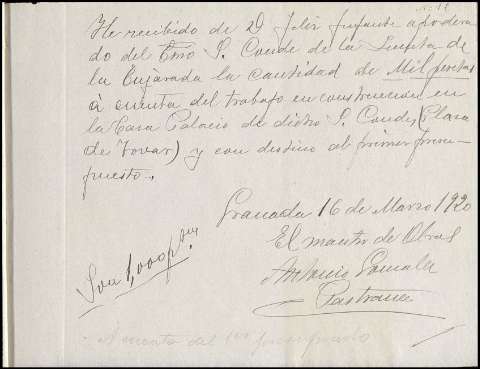 Nº 18
He recibido de D Felix Infante apodera-
do del Exmo S. Conde de la
la Enjarada la cantidad de Mil pesetas
á cuenta del trabajo en construccion en
la Casa Palacio de dicho S. Conde, (Plaza
de Tovar) y con destino al primer presu-
puesto.
Granada 16 de Marzo 1920
El maestro de Obras
Antonio
Pastrana
Son 1,000 ptas.
A cuenta del 1er presupuesto